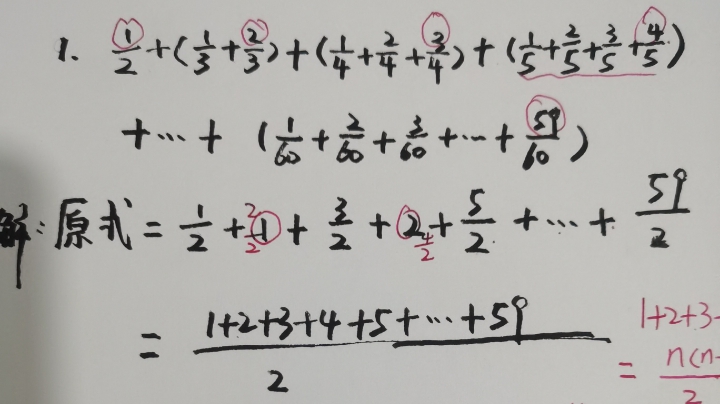 1. 1/2 + (1/3 + 2/3) + (1/4 + 2/4 + 3/4) + (1/5 + 2/5 + 3/5 + 4/5)
+ ··· + (1/60 + 2/60 + 3/60 + ··· + 59/60)
解: 原式 = 1/2 + 1 2/2 + 3/2 + 2 4/2 + 5/2 + ··· + 59/2
= 1+2+3+4+5+···+59 / 2
1+2+3
= n(n- / 2